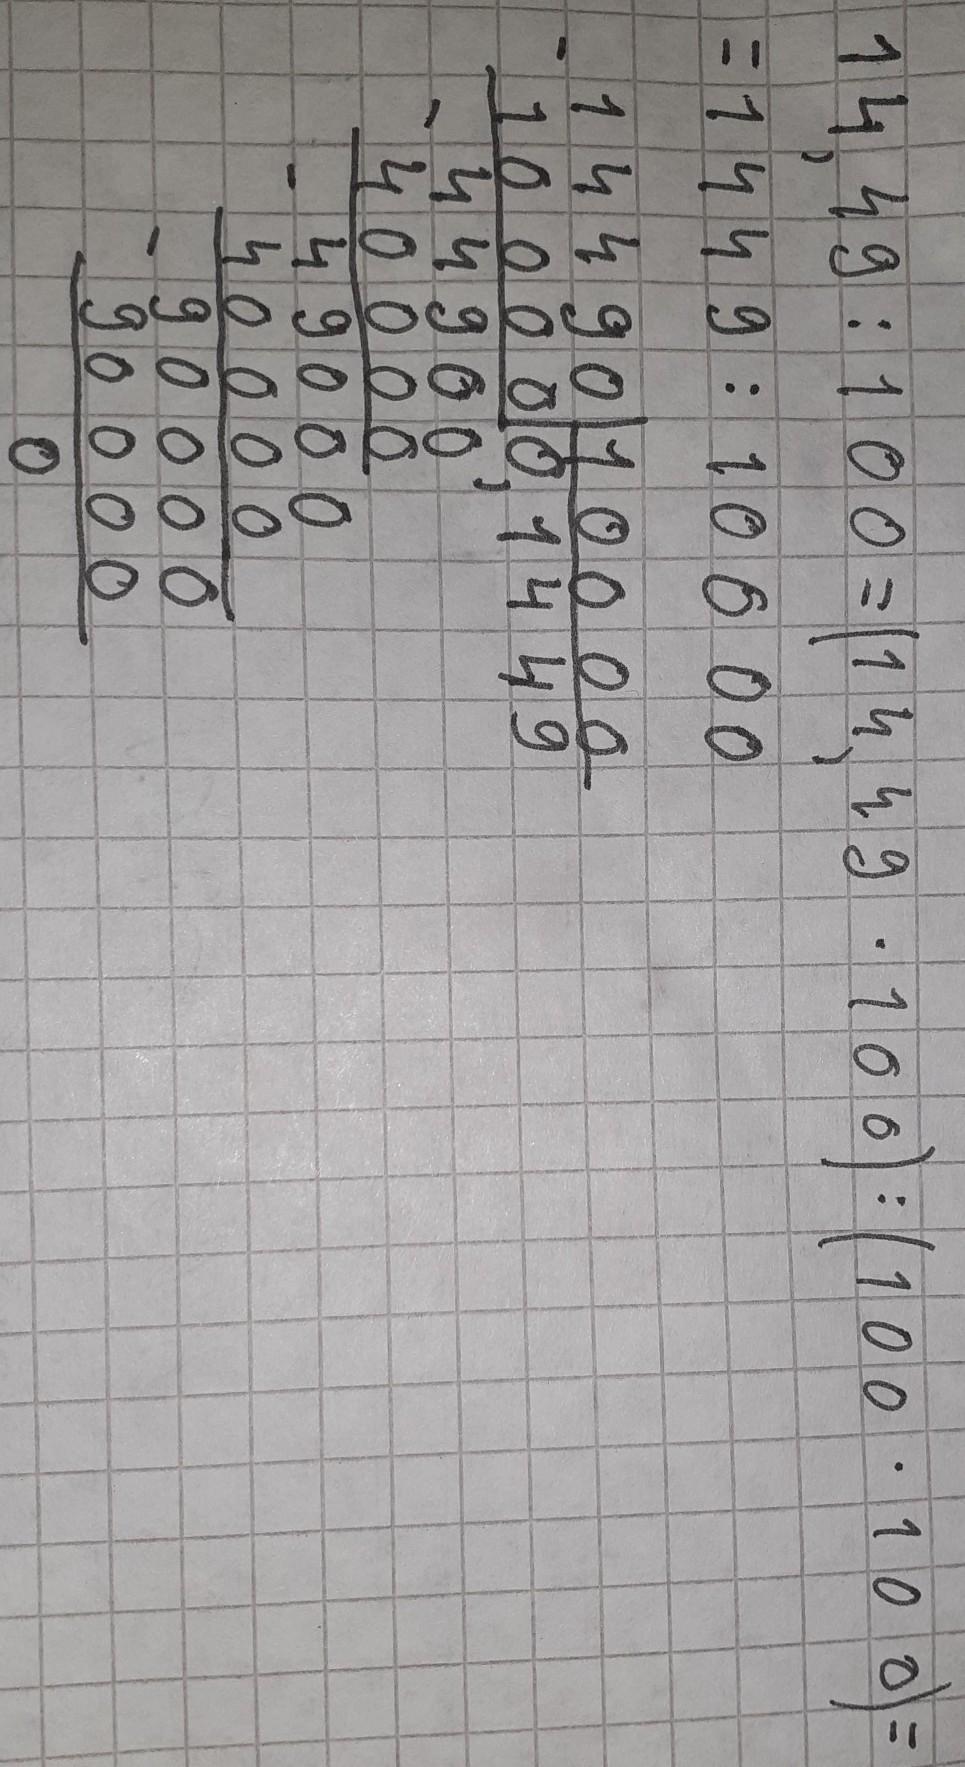 14,49:100=(14,49·100):(100·100)=
=1449:10000
-14490|10000
10000|0,1449
-44900
40000
-49000
40000
-90000
90000
0